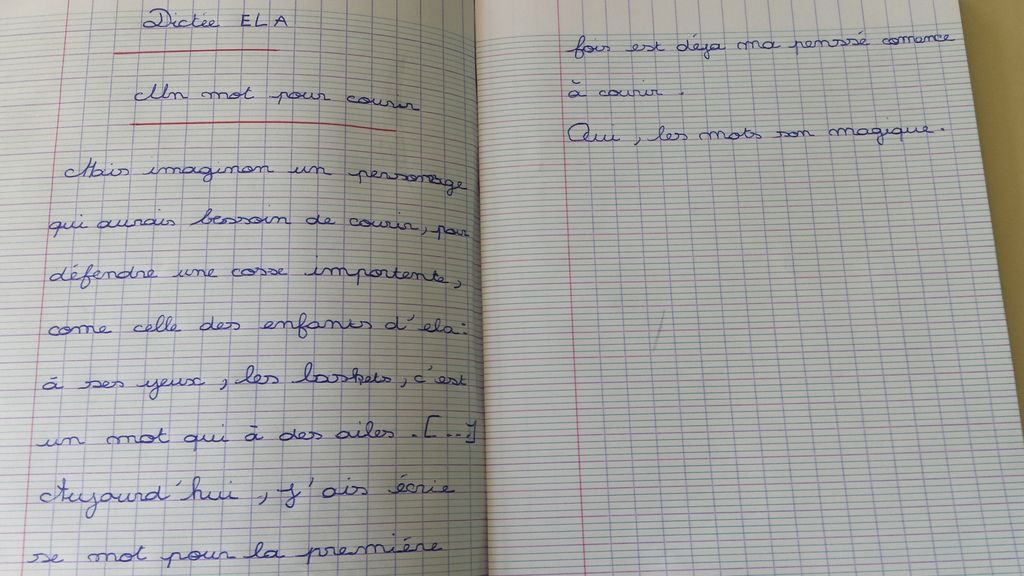 Dictée ELA
Un mot pour courir
Mais imaginon un personage
qui aurais bessoin de courir, pour
défendre une cosse importente,
come celle des enfants d'ela:
à ses yeux, les baskets, c'est
un mot qui à des ailes. [...]
Aujourd'hui, j'ais écrie
se mot pour la première
fois est déja ma penssé comence
à courir.
Oui, les mots son magique.